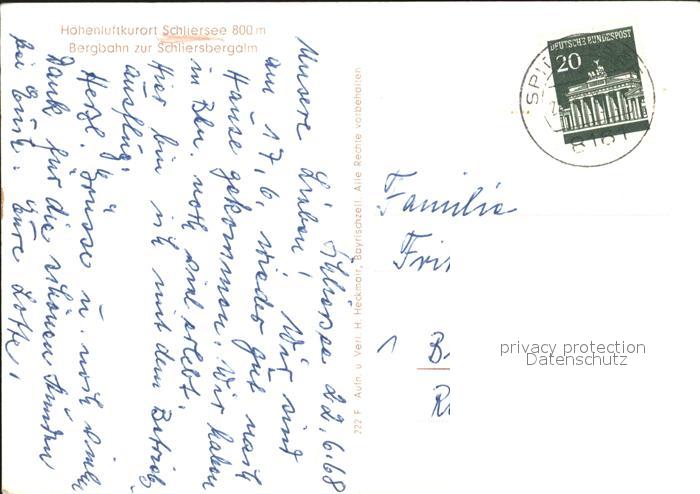 Höhenluftkurort Schliersee 800 m
Bergbahn zur Schliersbergalm
Schliersee 22.6.68
Unsere Lieben! Wir sind
am 17.6. wieder gut nach
Hause gekommen. Wir haben
in Bln. noch viel erlebt.
Hier bin ich mit dem Betrieb
ausflug.
Herzl. Grüsse u. noch vielen
Dank für die schönen Stunden
bei Euch. Eure Lotte.
222 F Aufn. u. Verl. H. Heckmair, Bayrischzell. Alle Rechte vorbehalten
DEUTSCHE BUNDESPOST
20
SPI
8161
Familie
Fri
1 B
R
privacy protection
Datenschutz